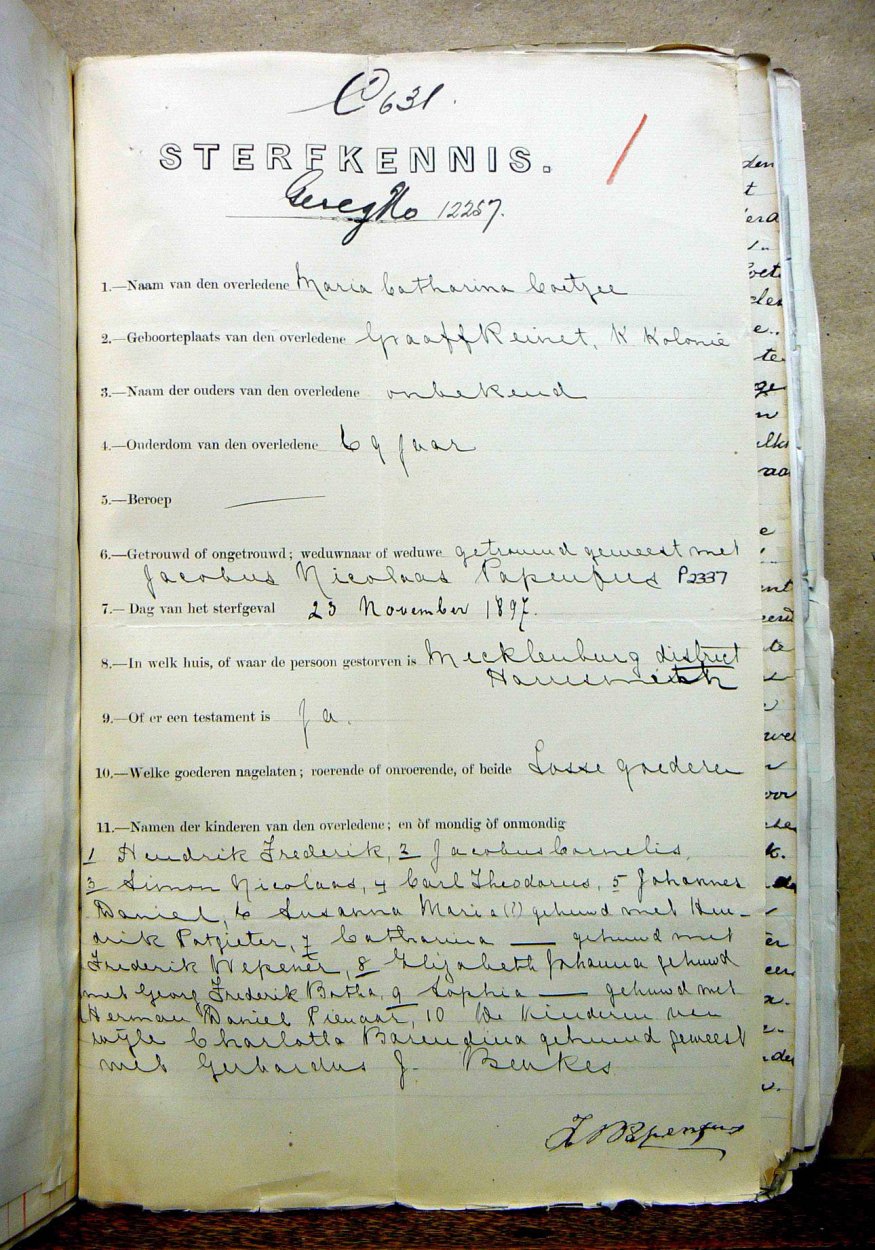 C 631.
STERFKENNIS.
Gereg No 12257.
1.—Naam van den overledene Maria Catharina Coetzee
2.—Geboorteplaats van den overledene Graaff Reinet, K Kolonie
3.—Naam der ouders van den overledene onbekend
4.—Ouderdom van den overledene 69 jaar
5.—Beroep
6.—Getrouwd of ongetrouwd; weduwnaar of weduwe getrouwd geweest met
Jacobus Nicolaas Papenfus P2337
7.—Dag van het sterfgeval 23 November 1897.
8.—In welk huis, of waar de persoon gestorven is Mecklenburg district
Harrismith
9.—Of er een testament is Ja.
10.—Welke goederen nagelaten; roerende of onroerende, of beide Losse goederen
11.—Namen der kinderen van den overledene; en òf mondig òf onmondig
1 Hendrik Frederik, 2 Jacobus Cornelis,
3 Simon Nicolaas, 4 Carl Theodorus, 5 Johannes
Daniel, 6 Susanna Maria (?) gehuwd met Hen-
drik Potgieter, 7 Catharina — gehuwd met
Frederik Wepener, 8 Elizabeth Johanna gehuwd
met Georg Frederik Botha, 9 Sophia — gehuwd met
Herman Daniel Pienaar, 10 De kinderen van
wyle Charlotta Barendina gehuwd geweest
met Gerhardus J. Beukes